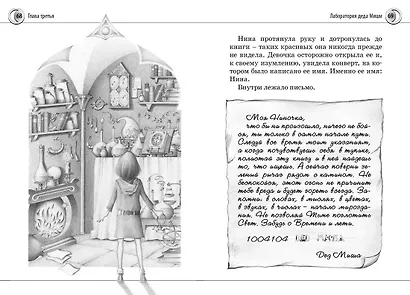 68
Глава третья
Лаборатория деда Миши
69
Нина протянула руку и дотронулась до
книги – таких красивых она никогда прежде
не видела. Девочка осторожно открыла ее и,
к своему изумлению, увидела конверт, на ко-
тором было написано ее имя. Именно ее имя:
Нина.
Внутри лежало письмо.
Моя Ниночка,
что бы ни произошло, ничего не бой-
ся, ты только в самом начале пути.
Следуй все время моим указаниям,
а когда почувствуешь себя в тупике,
полистай эту книгу и в ней найдешь
то, что ищешь. А сейчас поверни зе-
леный рычаг рядом с камином. Не
беспокойся, этот огонь не причинит
тебе вреда и будет гореть всегда. За-
помни: в словах, в мыслях, в цветах,
в звуках, в числах – начало мирозда-
ния. Не позволяй Тьме поглотить
Свет. Забудь о Времени и лети.
1004104
Дед Миша